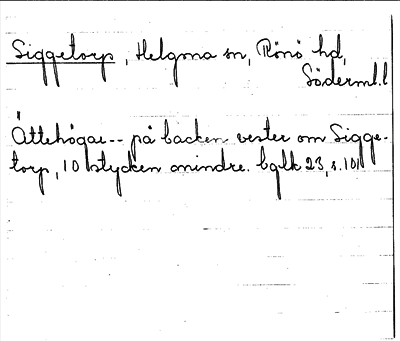 Siggetorp, Helgona sn, Rönö hd,
Söderml.l
Ättehögar -- på backen vester om Sigge-
torp, 10 stycken mindre. bglk 23, s.101